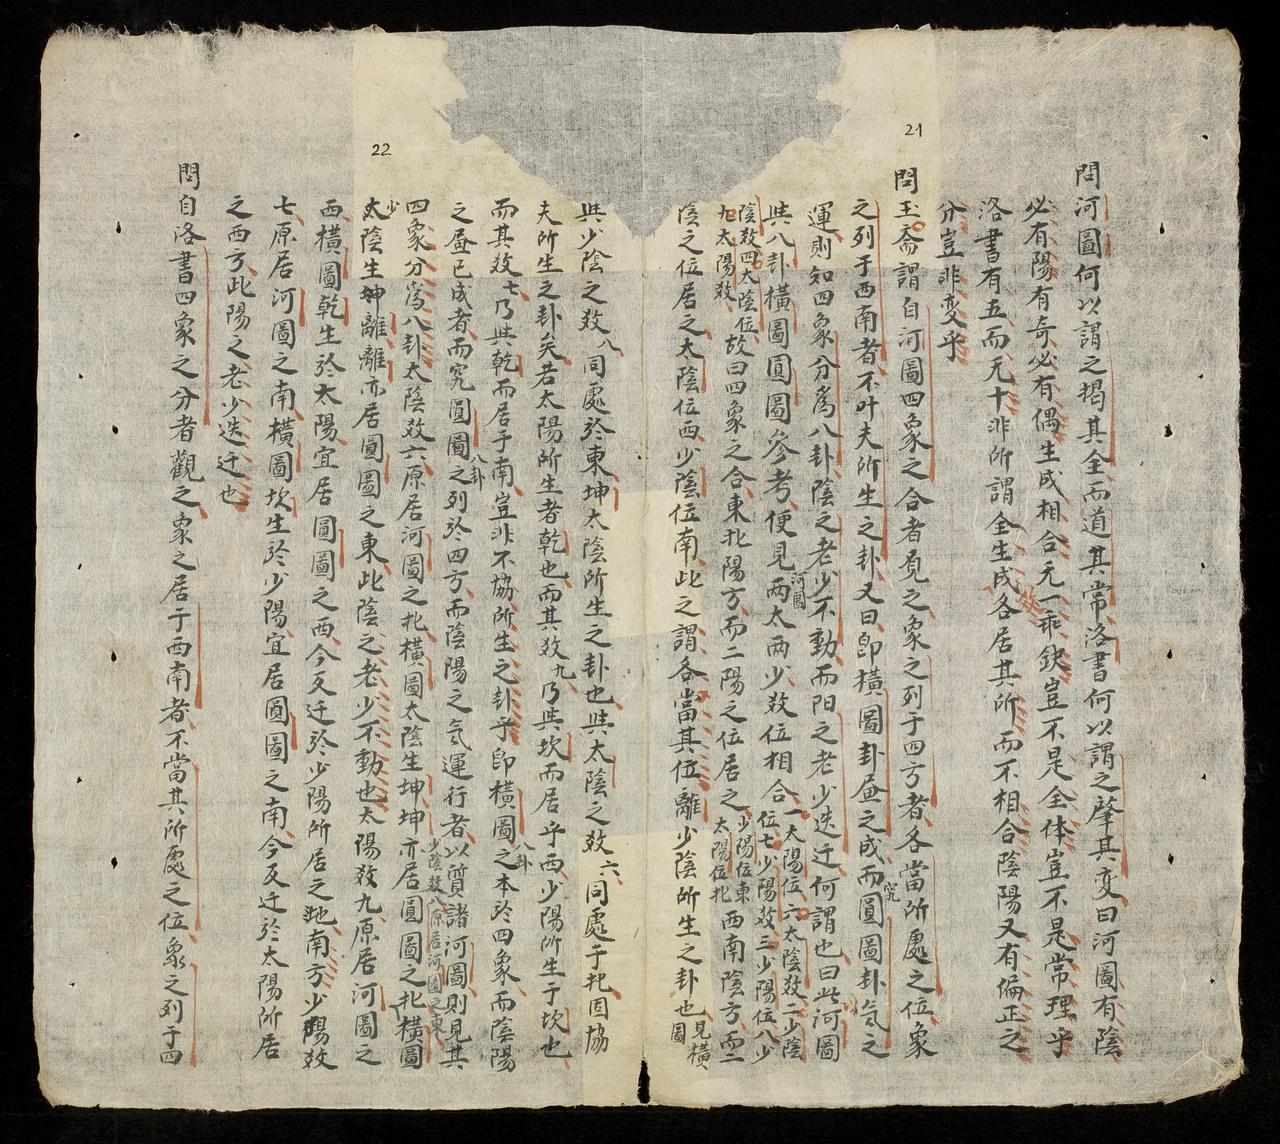 21
問河圖何以謂之揭其全而道其常洛書何以謂之肇其变曰河圖有陰
必有陽有奇必有偶生成相合无一乖欽豈不是全体豈不是常理乎
洛書有五而无十非所謂全生成各居其所而不相合陰陽又有偏正之
分豈非变乎
問玉斋謂自河圖四象之合者覓之象之列于四方者各當所處之位象
之列于西南者不叶夫所生之卦又曰卽橫圖卦畫之成而究圓圖卦氣之
運則知四象分爲八卦陰之老少不動而阳之老少迭迁何謂也曰此河圖
與八卦橫圖圓圖參考便見河圖两太两少效位相合一太陽位六太陰效二少陰位七少陽效三少陽位八少
陰效四太陰位九太陽效故曰四象之合東北陽方而二陽之位居之少陽位東太陽位北西南陰方而二
陰之位居之太陰位西少陰位南此之謂各當其位離少陰所生之卦也見橫圖
22
與少陰之效八同處於東坤太陰所生之卦也與太陰之效六同處于北固協
夫所生之卦矣若太陽所生者乾也而其效九乃與坎而居乎西少陽所生于坎也
而其效七乃與乾而居于南豈非不協所生之卦乎卽橫圖八卦之本於四象而陰陽
之畫已成者而究圓圖八卦之列於四方而陰陽之氣運行者以質諸河圖則見其
四象分爲八卦太陰效六原居河圖之北橫圖太陰生坤坤亦居圓圖之北橫圖少陰效八原居河圖之東
少陰生離離亦居圓圖之東此陰之老少不動也太陽效九原居河圖之
西橫圖乾生於太陽宜居圓圖之西今反迁於少陽所居之南方少陽效
七原居河圖之南橫圖坎生於少陽宜居圓圖之南今反迁於太陽所居
之西方此陽之老少迭迁也
問自洛書四象之分者觀之象之居于西南者不當其所處之位象之列于四